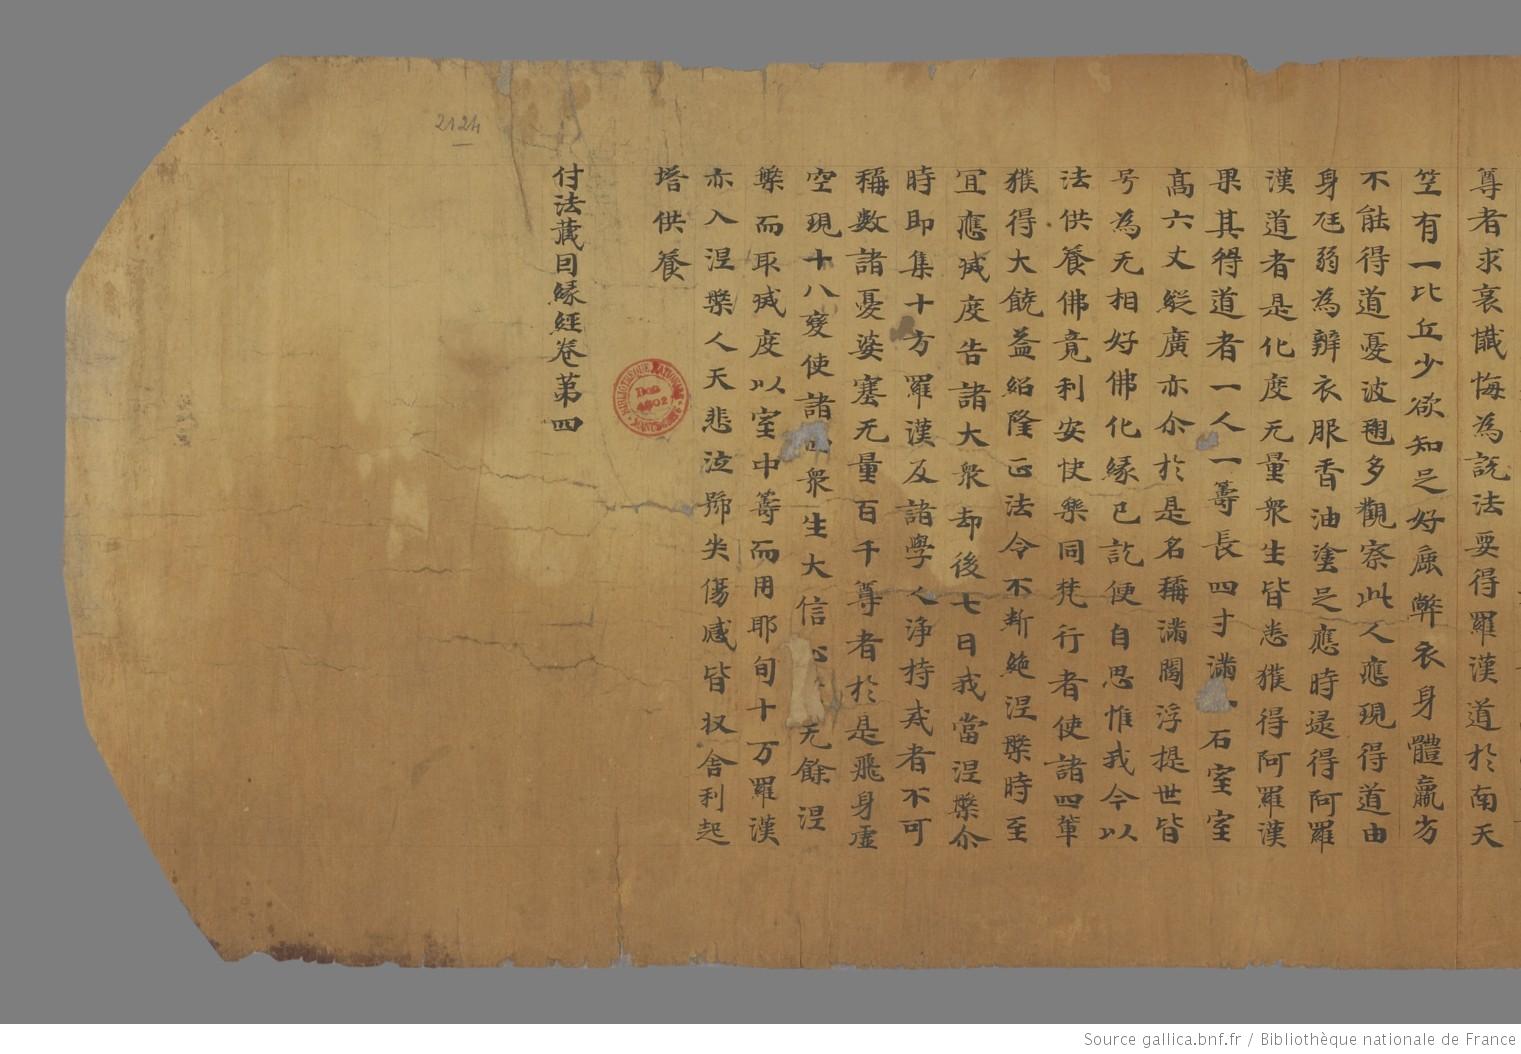 尊者求哀懴悔為說法要得羅漢道於南天
笁有一比丘少欲知足好麁弊衣身體羸劣
不能得道憂波毱多觀察此人應現得道由
身尫弱為辦衣服香油塗足應時逮得阿羅
漢道者是化度无量衆生皆悉獲得阿羅漢
果其得道者一人一籌長四寸滿石室室
高六丈縱廣亦尒於是名稱滿閻浮提世皆
号為无相好佛化緣已訖便自思惟我今以
法供養佛竟利安快樂同梵行者使諸四軰
獲得大饒益紹隆正法令不斷絶涅槃時至
冝應滅度告諸大衆却後七日我當涅槃尒
時即集十方羅漢及諸學人浄持戒者不可
稱數諸憂婆塞无量百千尊者於是飛身虛
空現十八變使諸衆生大信心无餘涅
槃而取滅度以室中籌而用耶旬十万羅漢
亦入涅槃人天悲泣號哭傷感皆收舍利起
塔供養
付法藏因緣經卷第四
2124
BIBLIOTHÈQUE NATIONALE
MANUSCRITS
Source gallica.bnf.fr / Bibliothèque nationale de France